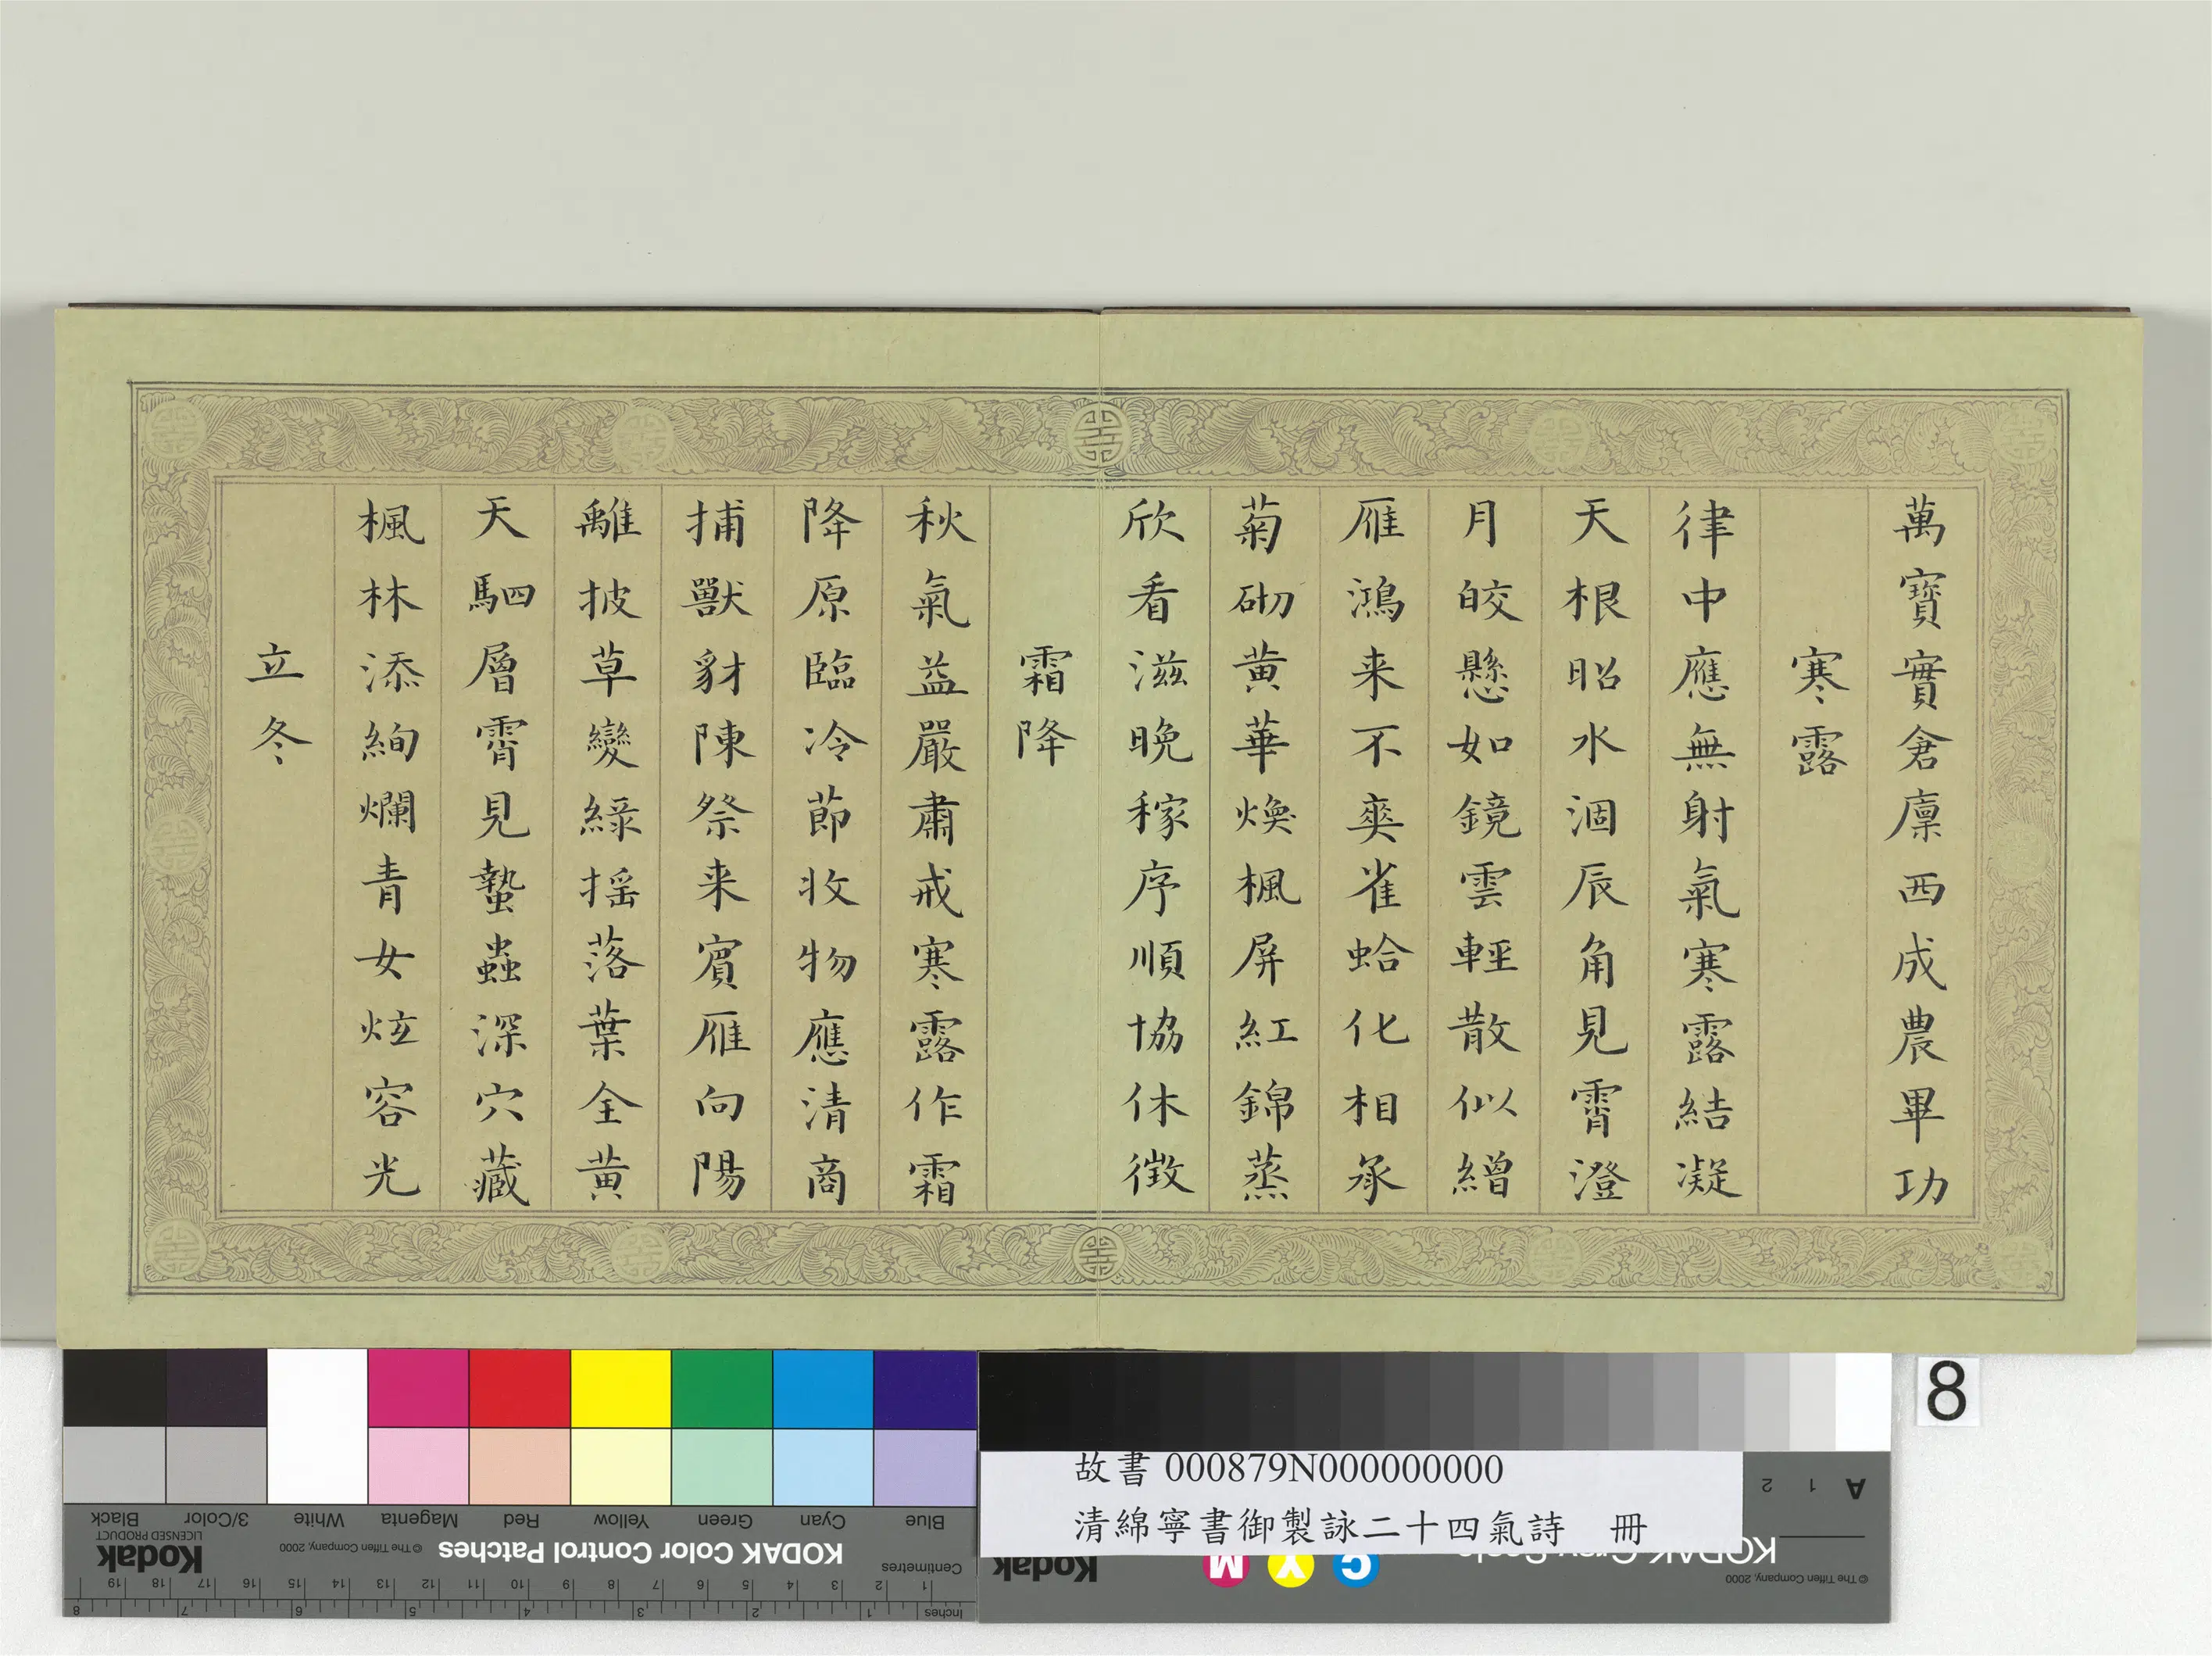 萬寶實倉廩西成農畢功
寒露
律中應無射氣寒露結凝
天根昭水涸辰角見霄澄
月皎懸如鏡雲輕散似繒
雁鴻来不爽雀蛤化相承
菊砌黄華煥楓屏紅錦蒸
欣看滋晚稼序順協休徴
霜降
秋氣益嚴肅戒寒露作霜
降原臨冷節收物應清商
捕獸豺陳祭来賓雁向陽
離披草變綠揺落葉全黄
天駟層霄見蟄蟲深穴藏
楓林添絢爛青女炫容光
立冬
8
故書 000879N000000000
清綿寧書御製詠二十四氣詩 冊
Blue Cyan Green Yellow Red Magenta White 3/Color Black
KODAK Color Control Patches © The Tiffen Company, 2000 Kodak
LICENSED PRODUCT
Centimetres 1 2 3 4 5 6 7 8 9 10 11 12 13 14 15 16 17 18 19
Inches 1 2 3 4 5 6 7 8
A 1 2
KODAK Gray Scale
C Y M Kodak
© The Tiffen Company, 2000